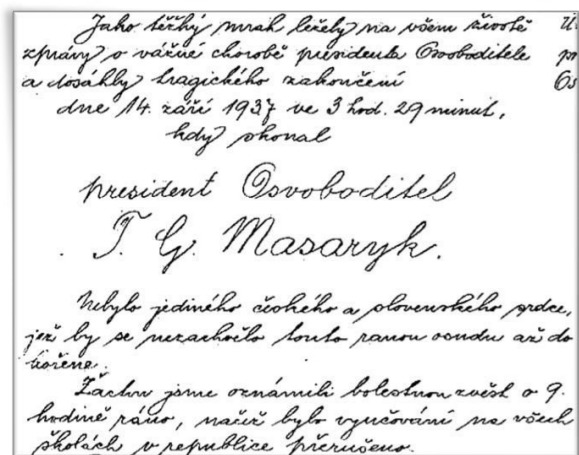 Jako těžký mrak ležely na všem životě
zprávy o vážné chorobě presidenta Osvoboditele
a dosáhly tragického zakončení
dne 14. září 1937 ve 3 hod. 29 minut,
kdy skonal
president Osvoboditel
T. G. Masaryk.
Nebylo jediného českého a slovenského srdce,
jež by se nezachvělo touto ranou osudu až do
kořene.
Žactvu jsme oznámili bolestnou zvěst o 9.
hodině ráno, načež bylo vyučování na všech
školách v republice přerušeno.